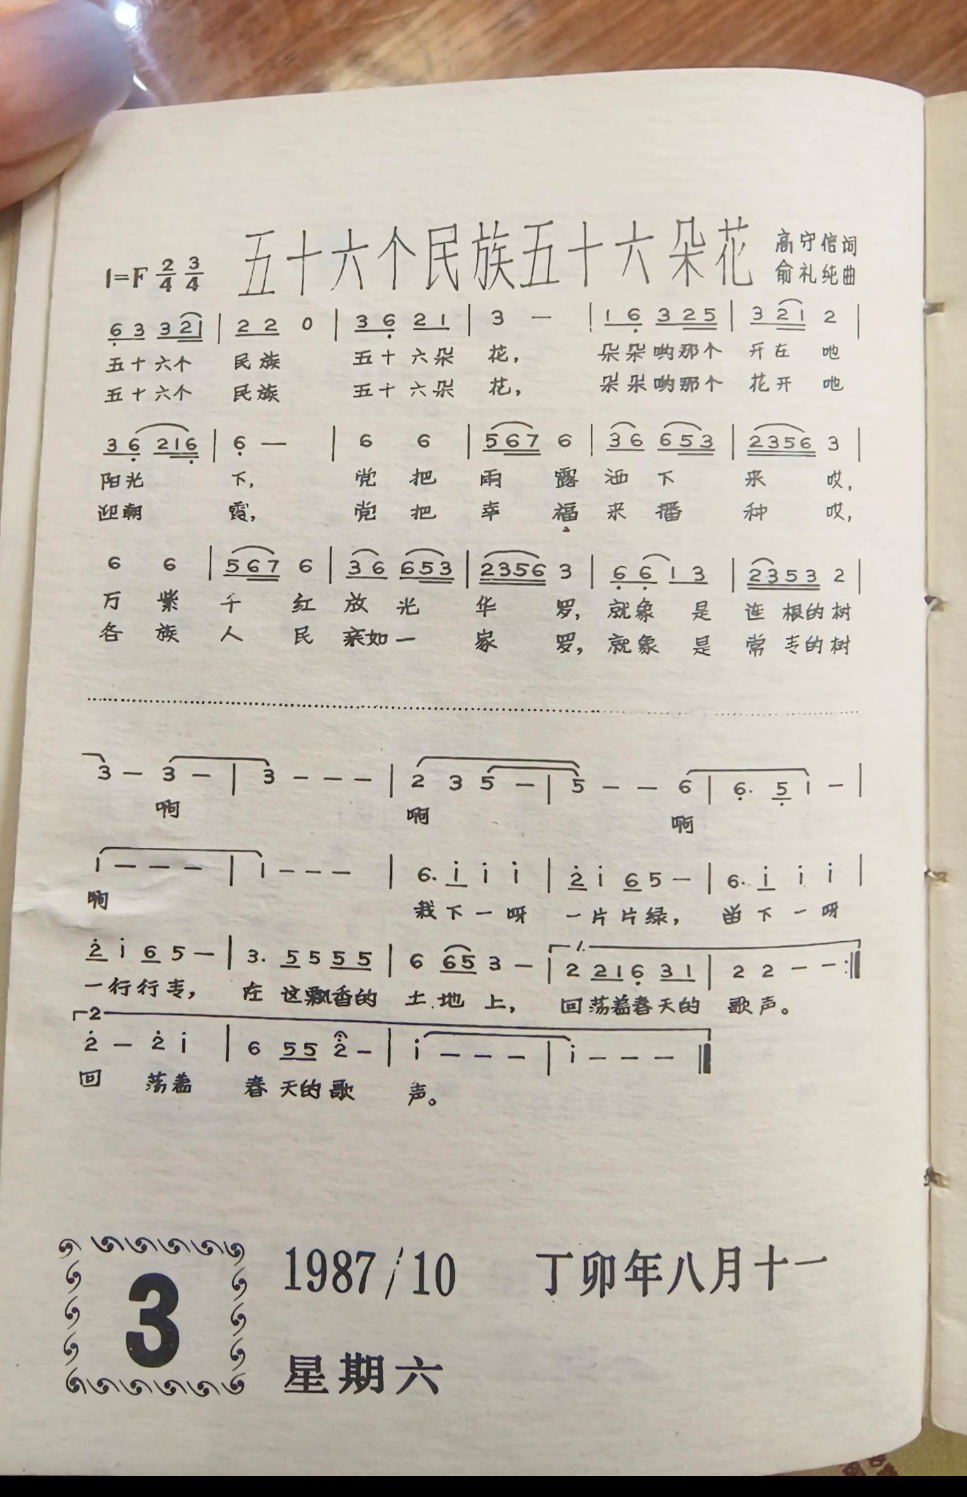 五十六个民族五十六朵花
高守信词
1=F 2/4 3/4
俞礼纯曲
6 3 3 2 1 | 2 2 0 | 3 6 2 1 | 3 — | 1 6 3 2 5 | 3 2 1 2 |
五十六个 民族 五十六朵 花， 朵朵哟那个 开在 吔
五十六个 民族 五十六朵 花， 朵朵哟那个 花开 吔
3 6 2 1 6 | 6 — | 6 6 | 5 6 7 6 | 3 6 6 5 3 | 2 3 5 6 3 |
阳光 下， 党 把 雨 露 洒 下 来 哎，
迎朝 霞， 党 把 幸 福 来 播 种 哎，
6 6 | 5 6 7 6 | 3 6 6 5 3 | 2 3 5 6 3 | 6 6 1 3 | 2 3 5 3 2 |
万 紫 千 红 放 光 华 罗， 就象 是 连 根的树
各 族 人 民 亲如一 家 罗， 就象 是 常 青的树
3 — 3 — | 3 — — — | 2 3 5 — | 5 — — 6 | 6. 5 1 — |
啊 啊 啊
i — — — | i — — — | 6. i i i | 2 i 6 5 — | 6. i i i |
啊 栽下一呀 一片片绿， 留下一呀
2 i 6 5 — | 3. 5 5 5 5 | 6 6 5 3 — | 1. 2 2 1 6 3 1 | 2 2 — — :|
一行行青， 在 这飘香的 土地上， 回荡着春天的 歌声。
2
2 — 2 i | 6 5 5 2 — | i — — — | i — — — |
回 荡着 春 天的歌 声。
3
1987/10 丁卯年八月十一
星期六